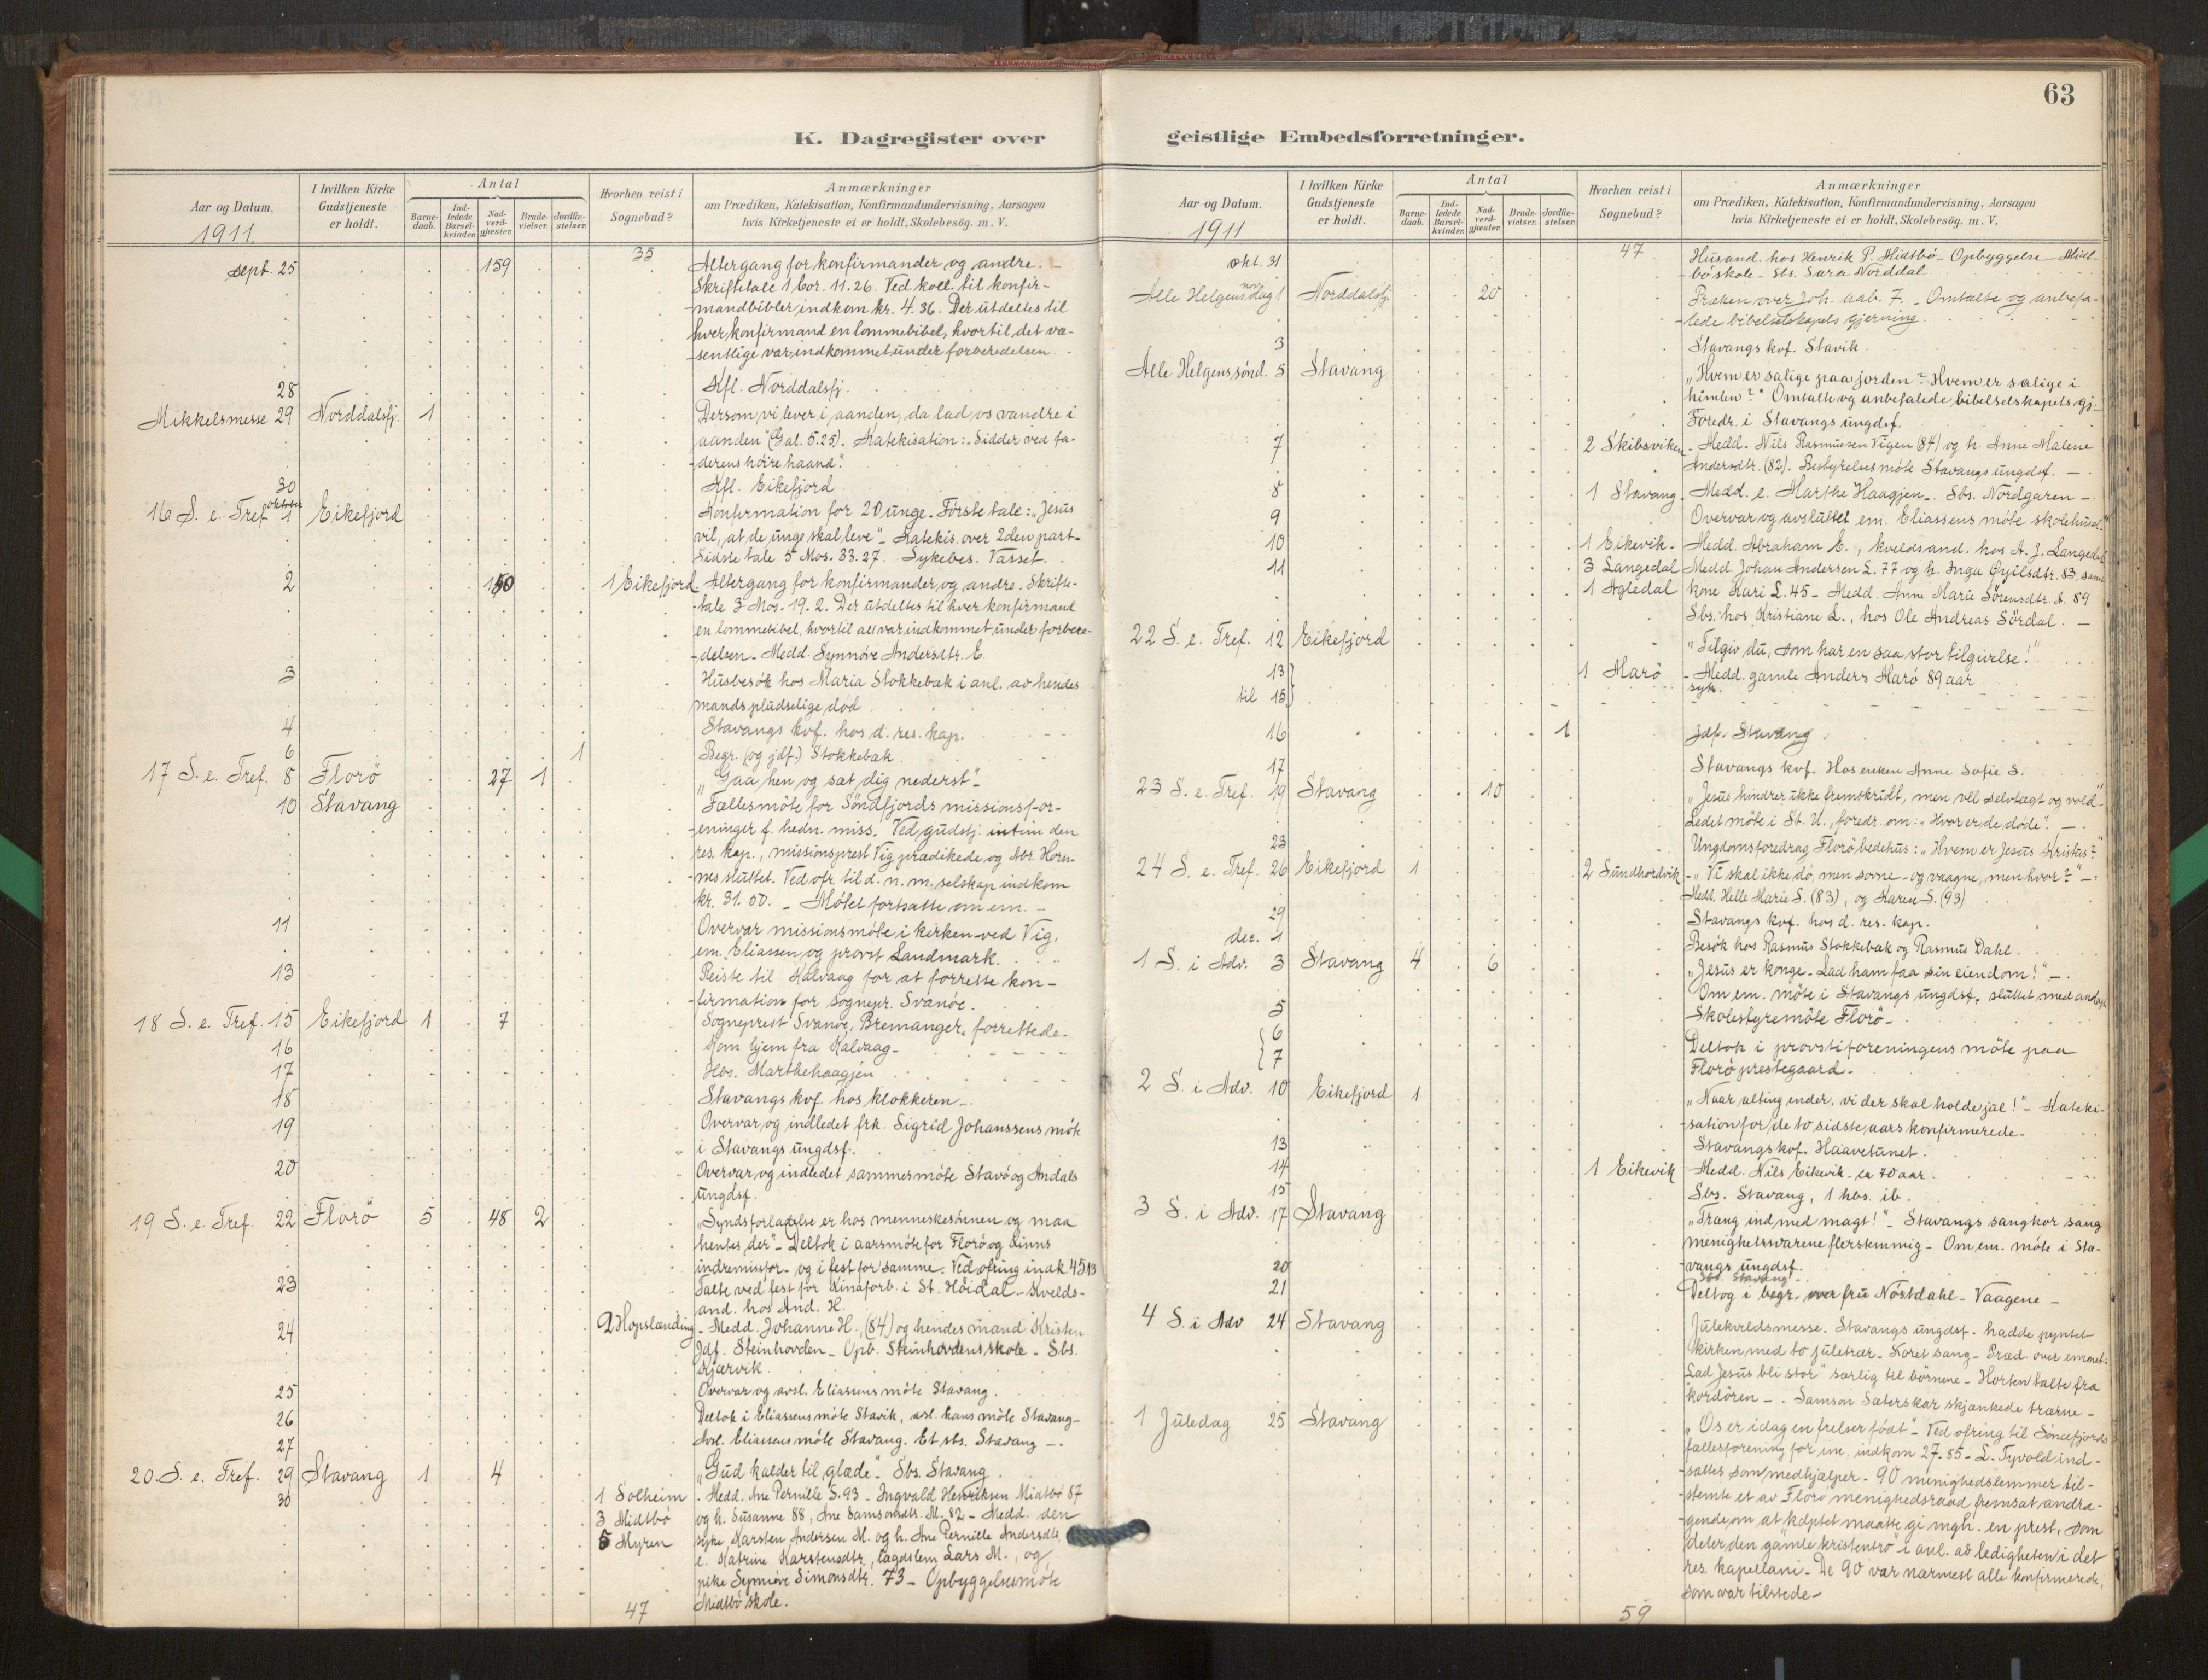 63
K. Dagregister over
geistlige Embedsforretninger.
Aar og Datum.
1911.
I hvilken Kirke Gudstjeneste er holdt.
Antal
Barne-daab.
Ind-ledede Barsel-kvinder.
Nad-verd-gjæster.
Brude-vielser.
Jordfæ-stelser.
Hvorhen reist i Sognebud?
Anmærkninger
om Prædiken, Katekisation, Konfirmandundervisning, Aarsagen
hvis Kirketjeneste ei er holdt, Skolebesög. m. V.
35
sept. 25 159 Altergang for konfirmander og andre. –
Skriftetale 1 Cor. 11.26. Ved koll. til konfir-
-mandbibler indkom kr. 4.36. Der utdeltes til
hver konfirmand en lommebibel, hvortil det væ-
-sentlige var indkommet under forberedelsen.
28 Kfl. Norddalsfj.
Mikkelsmesse 29 Norddalsfj. 1 Dersom vi lever i aanden, da lad os vandre i
aanden" (Gal. 5.25). Katekisation: „Sidder ved fa-
-derens höire haand".
30 Kfl. Eikefjord
16 S. e. Tref. oktober 1 Eikefjord Konfirmation for 20 unge. Förste tale: „Jesus
vil, at de unge skal leve" – Katekis. over 2den part –
Sidste tale 5 Mos. 33.27. Sykebes. Vasset.
2 150 1 Eikefjord Altergang for konfirmander og andre. Skrifte-
-tale 3 Mos. 19.2. Der utdeltes til hver konfirmand
en lommebibel, hvortil alt var indkommet under forbere-
-delsen. Medd. Synnöve Andersdtr. E.
3 Husbesök hos Maria Stokkebæk i anl. av hendes
mands pludselige död
4 Stavangs kvf. hos d. res. kap.
6 1 Begr. (og jdf.) Stokkebak
17 S. e. Tref. 8 Florö 27 1 „Gaa hen og sæt dig nederst" –
10 Stavang Fællesmöte for Söndfjords missionsfor-
-eninger f. hedn. miss. Ved gudstj. den
res. kap., missionsprest Vig prædikede og Horn-
-nes sluttet. Ved ofr. til d. n. m. selskap indkom
kr. 31.50. – Mötet fortsatte om em. –
11 Overvar missionsmöte i kirken ved Vig,
em. Eliassen, og provst Landmark.
13 Reiste til Kalvaag for at forrette kon-
-firmation for sognepr. Svanöe.
18 S. e. Tref. 15 Eikefjord 1 7 Sogneprest Svanöe, Bremanger, forrettede.
16 Kom hjem fra Kalvaag –
17 Hbs. Marthehaagjen
18 Stavangs kvf. hos klokkeren –
19 Overvar og indledet frk. Sigrid Johanssens möte
i Stavangs ungdsf.
20 Overvar og indledet sammes möte Stavö og Andals
ungdsf.
19 S. e. Tref. 22 Florö 5 48 2 „Syndsforladelse er hos menneskesönnen og maa
hentes der" – Deltok i aarsmöte for Florö og Kinns
indremisfor. og i fest for samme. Ved ofring indk 45.13
23 Talte ved fest for Kinaforb. i St. Höidal – Kvelds-
and. hos And. H.
24 2 Hopslanding – Medd. Johanne H., (84) og hendes mand Kristen
Jdf. Steinhovden – Opb. Steinhovdens skole – Sbs.
Kjærvik
25 Overvar og avsl. Eliassens möte Stavang.
26 Deltok i Eliassens möte Stavik, avsl. hans möte Stavang –
27 Avsl. Eliassens möte Stavang. Et sbs. Stavang –
20. S. e. Tref. 29 Stavang 1 4 „Gud kalder til glæde". Sbs. Stavang
30 1 Solheim . Medd. Ane Pernille S. 93 – Ingvald Henriksen Midtbö 87
3 Midtbö og h. Susanne 88, Ane Samsonsdtr. M. 82 – Medd. den
5 Myren syke Karsten Andersen M. og h. Ane Pernille Andersdtr,
e. Katrine Karstensdtr., lægdslem Lars M., og
pike Synnöve Simonsdtr. 73 – Opbyggelsesmöte
47 Midtbö skole.
Aar og Datum.
1911
I hvilken Kirke Gudstjeneste er holdt.
Antal
Barne-daab.
Ind-ledede Barsel-kvinder.
Nad-verd-gjæster.
Brude-vielser.
Jordfæ-stelser.
Hvorhen reist i Sognebud?
Anmærkninger
om Prædiken, Katekisation, Konfirmandundervisning, Aarsagen
hvis Kirketjeneste ei er holdt, Skolebesög. m. V.
47
okt. 31 Husand. hos Henrik P. Midtbö – Opbyggelse Midt-
-bö skole – Sbs. Sara Norddal
Alle Helgensdag nov. 1 Norddalsfj. 20 Præken over Joh. aab. 7. – Omtalte og anbefa-
-lede bibelselskapets gjerning.
3 Stavangs kvf. Stavik
Alle Helgenssönd. 5 Stavang „Hvem er salige paa jorden? Hvem er salige i
himlen?" Omtalte og anbefalede bibelselskapets gj –
Foredr. i Stavangs ungdsf.
7 2 Skibsviken – Medd. Nils Rasmussen Vigen (84) og h. Anne Malene
Andersdtr. (82). Bestyrelsesmöte Stavangs ungdsf. –
8 1 Stavang. Medd. e. Marthe Haagjen –. Sbs. Nordgaren –
9 Overvar og avsluttet em. Eliassens möte skolehuset"
10 1 Eikevik. Medd. Abraham E., kveldsand. hos A. J. Langedal
11 3 Langedal Medd Johan Andersen L. 77 og h. Inga 83, samt
1 Agledal kone Kari L. 45 – Medd. Anne Marie Sörensdtr. A. 89
Sbs. hos Kristiane L., hos Ole Andreas Sördal. –
22 S. e. Tref. 12 Eikefjord „Tilgiv du, som har en saa stor tilgivelse!"
13 til 15 1 Marö – Medd. gamle Anders Marö 89 aar
syk.
16 1 Jdf. Stavang
17 Stavangs kvf. Hos enken Anne Sofie S.
23 S. e. Tref. 19 Stavang 10 „Jesus hindrer ikke fremskridt, men vel selvtægt og vold"
Ledet möte i St. U., foredr. om: „Hvor er de döde". –
23 Ungdomsforedrag Florö bedehus: „Hvem er Jesus Kristus?"
24 S. e. Tref. 26 Eikefjord 1 2 Sundhordvik – „Vi skal ikke dö, men sovne – og vaagne, men hvor?" –
Medd. Helle Marie S. (83), og Karen S. (93)
29 Stavangs kvf. hos d. res. kap.
dec. 1 Besök hos Rasmus Stokkebak og Rasmus Dahl
1 S. i Adv. 3 Stavang 4 6 „Jesus er konge. Lad ham faa sin eiendom!" –
Om em. möte i Stavangs ungdsf, sluttet med
5 Skolestyremöte Florö –
6 7 Deltok i provstiforeningens möte paa
Florö prestegaard –
2 S. i Adv. 10 Eikefjord 1 „Naar alting ender, vi der skal holde jul!" – Kateki-
-sation for de to sidste aars konfirmerede –
13 Stavangs kvf. Haavetunet.
14 1 Eikevik Medd. Nils Eikevik. ca 70 aar.
15 Sbs. Stavang, 1 hbs. ib.
3 S. i Adv. 17 Stavang „Træng ind med magt!" – Stavangs sangkor sang
menighetssvarene flerstemmig – Om em. möte i Sta-
-vangs ungdsf.
20 Sbs. Stavang –
21 Deltog i begr. over fru Nöstdahl – Vaagene –
4 S. i Adv 24 Stavang Julekveldsmesse. Stavangs ungdsf. hadde pyntet
kirken med to juletrær – Koret sang – Præd. over emnet:
Lad Jesus bli stor" særlig til börnene – Horten talte fra
kordören –. Samson Sæterskar skjænkede trærne –
1 Juledag 25 Stavang „Os er idag en frelser födt" – Ved ofring til Söndfjords
fællesforening for im. indkom 27.85 – L. Tyvold ind-
-sattes som medhjælper – 90 menighedslemmer til-
-stemte et av Florö menighedsraad fremsat andra-
-gende om at kdptet maatte gi mgh. en prest, som
deler den "gamle kristentro" i anl. av ledigheten i det
res. kapellani – De 90 var nærmest alle konfirmerede,
som var tilstede –
59